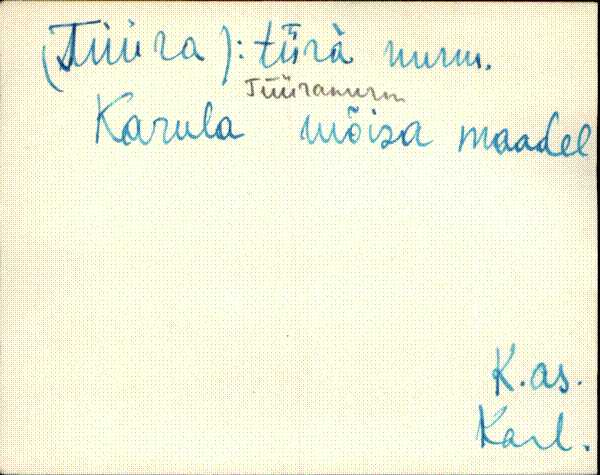 (Tüüra): türä nurm.
Tüüranurm
Karula mõisa maadel
K.as.
Karl.